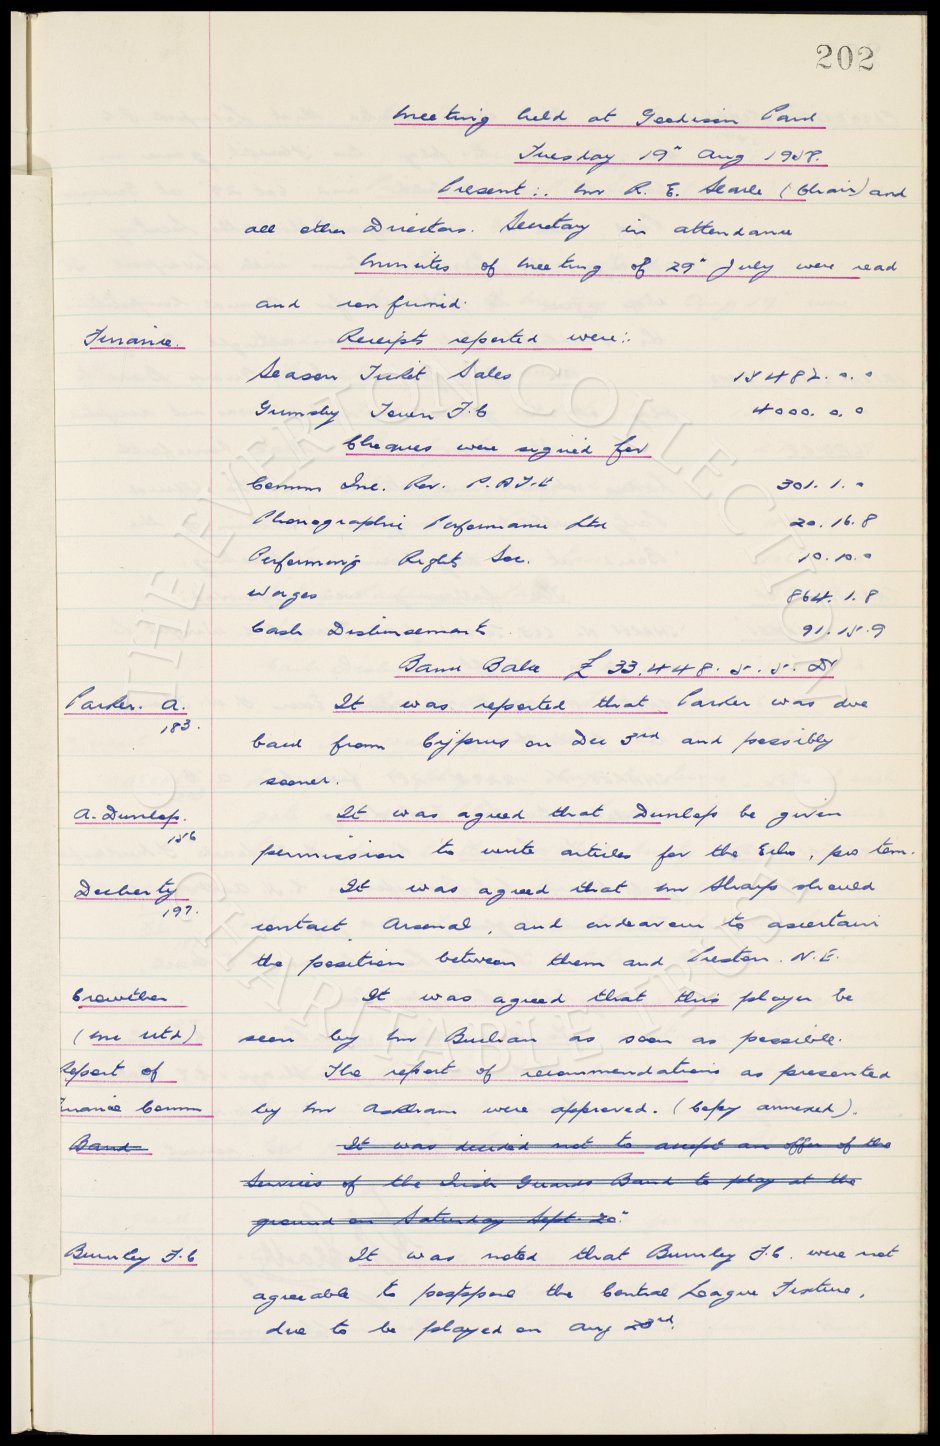 202
Meeting held at Goodison Park
Tuesday 19" Aug 1958.
Present:. Mr R. E. Searle (Chair) and
all other Directors. Secretary in attendance
Minutes of Meeting of 29" July were read
and confirmed.
Finance. Receipts reported were:.
Season Ticket Sales 15482. 0. 0
Grimsby Town F.C 4000. 0. 0
Cheques were signed for
Comm Inc. Rev. P.A.Y.E 301. 1. 0
Phonographic Performance Ltd 20. 16. 8
Performing Rights Soc. 10. 10. 0
Wages 864. 1. 8
Cash Disbursements 91. 15. 9
Bank Balce £33.448. 5. 5. Dr
Parker. A. It was reported that Parker was due
183. back from Cyprus on Dec 3rd and possibly
sooner.
A. Dunlop. It was agreed that Dunlop be given
156 permission to write articles for the Echo, pro tem.
Docherty It was agreed that Mr Sharp should
197. contact Arsenal, and endeavour to ascertain
the position between them and Preston. N.E.
Crowther It was agreed that this player be
(Mr Utd) seen by Mr Buchan as soon as possible.
Report of The report of recommendations as presented
Finance Comm by Mr Askham were approved. (Copy annexed).
Band It was decided not to accept an offer of the
Services of the Irish Guards Band to play at the
ground on Saturday Sept. 20".
Burnley F.C It was noted that Burnley F.C. were not
agreeable to postpone the Central League Fixture,
due to be played on Aug 23rd.
© THE EVERTON COLLECTION
CHARITABLE TRUST